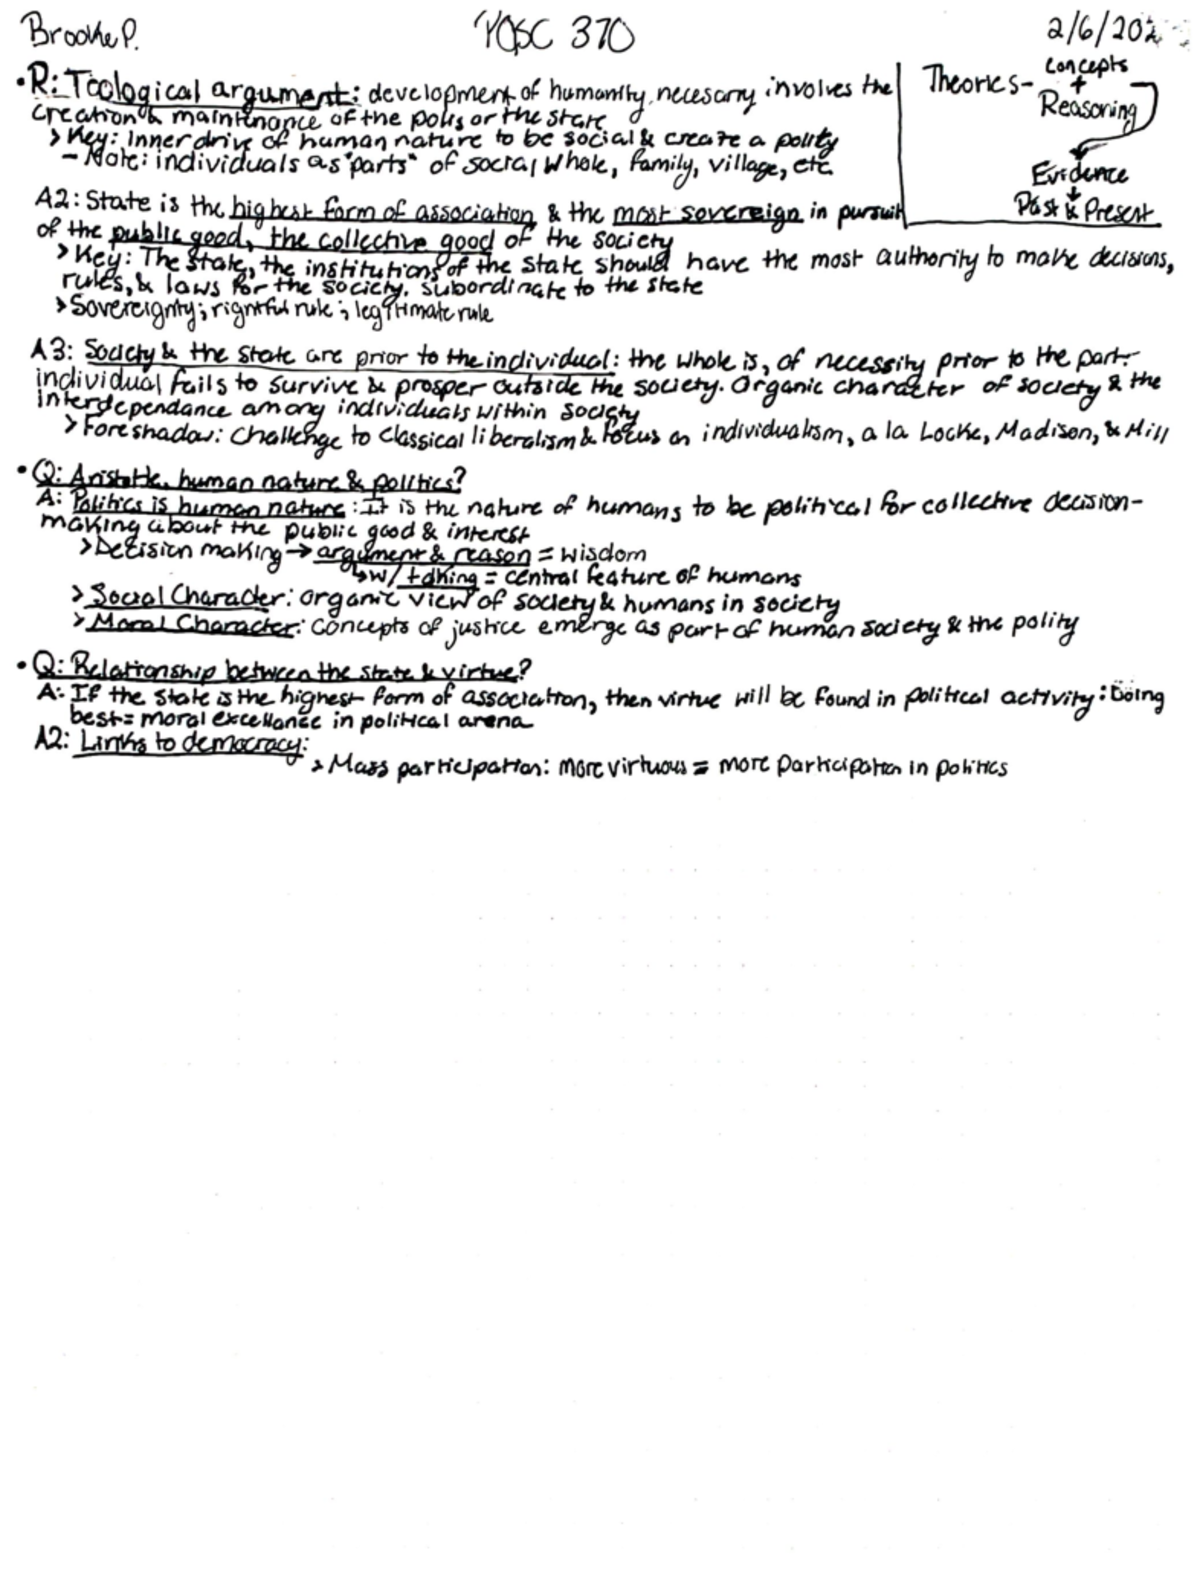 Brooke P.
POSC 370
2/6/202
• R: Teological argument: development of humanity, necessary involves the
creation & maintenance of the polis or the state
> Key: Inner drive of human nature to be social & create a polity
- Note: individuals as "parts" of social whole, family, village, etc.
Theories-
concepts
+
Reasoning
Evidence
Past & Present
A2: State is the highest form of association & the most sovereign in pursuit
of the public good, the collective good of the society
> Key: The state, the institutions of the state should have the most authority to make decisions,
rules, & laws for the society. subordinate to the state
> Sovereignty; rightful rule; legitimate rule
A3: Society & the state are prior to the individual: the whole is, of necessity prior to the part:
individual fails to survive & prosper outside the society. Organic character of society & the
interdependance among individuals within society
> Foreshadow: Challenge to Classical liberalism & focus on individualism, a la Locke, Madison, & Mill
• Q: Aristotle, human nature & politics?
A: Politics is human nature: It is the nature of humans to be political for collective decision-
making about the public good & interest
> Decision making → argument & reason = wisdom
↳ w/ talking = central feature of humans
> Social Character: organic view of society & humans in society
> Moral Character: concepts of justice emerge as part of human society & the polity
• Q: Relationship between the state & virtue?
A: If the state is the highest form of association, then virtue will be found in political activity: Doing
best = moral excellence in political arena
A2: Links to democracy:
> Mass participation: more virtuous = more participation in politics